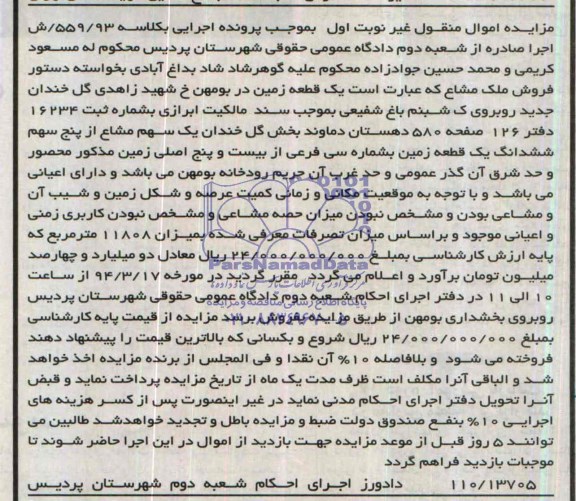 مزایده اموال منقول غیر نوبت اول بموجب پرونده اجرایی بکلاسه ۵۵۹/۹۳/ش
اجرا صادره از شعبه دوم دادگاه عمومی حقوقی شهرستان پردیس محکوم له مسعود
کریمی و محمد حسین جوادزاده محکوم علیه گوهرشاد شاد بداغ آبادی بخواسته دستور
فروش ملک مشاع که عبارت است یک قطعه زمین در بومهن خ شهید زاهدی گل خندان
جدید روبروی ک شبنم باغ شفیعی بموجب سند مالکیت ابرازی بشماره ثبت ۱۶۲۳۴
دفتر ۱۲۶ صفحه ۵۸۰ دهستان دماوند بخش گل خندان یک سهم مشاع از پنج سهم
ششدانگ یک قطعه زمین بشماره سی فرعی از بیست و پنج اصلی زمین مذکور محصور
و حد شرق آن گذر عمومی و حد غرب آن حریم رودخانه بومهن می باشد و دارای اعیانی
می باشد و با توجه به موقعیت مکانی و زمانی کمیت عرصه و شکل زمین و شیب آن
و مشاعی بودن و مشخص نبودن میزان حصه مشاعی و مشخص نبودن کاربری زمنی
و اعیانی موجود و براساس میزان تصرفات معرفی شده بمیزان ۱۱۸۰۸ مترمربع که
پایه ارزش کارشناسی بمبلغ ۲۴/۰۰۰/۰۰۰/۰۰۰ ریال معادل دو میلیارد و چهارصد
میلیون تومان برآورد و اعلام می گردد. مقرر گردید در مورخه ۹۴/۳/۱۷ از ساعت
۱۰ الی ۱۱ در دفتر اجرای احکام شعبه دوم دادگاه عمومی حقوقی شهرستان پردیس
روبروی بخشداری بومهن از طریق مزایده بفروش برسد مزایده از قیمت پایه کارشناسی
بمبلغ ۲۴/۰۰۰/۰۰۰/۰۰۰ ریال شروع و بکسانی که بالاترین قیمت را پیشنهاد دهند
فروخته می شود و بلافاصله ۱۰% آن نقدا و فی المجلس از برنده مزایده اخذ خواهد
شد و الباقی آنرا مکلف است ظرف مدت یک ماه از تاریخ مزایده پرداخت نماید و قبض
آنرا تحویل دفتر اجرای احکام مدنی نماید در غیر اینصورت پس از کسر هزینه های
اجرایی ۱۰% بنفع صندوق دولت ضبط و مزایده باطل و تجدید خواهدشد طالبین می
توانند ۵ روز قبل از موعد مزایده جهت بازدید از اموال در این اجرا حاضر شوند تا
موجبات بازدید فراهم گردد
۱۱۰/۱۳۷۰۵ دادورز اجرای احکام شعبه دوم شهرستان پردیس
ParsNamadData